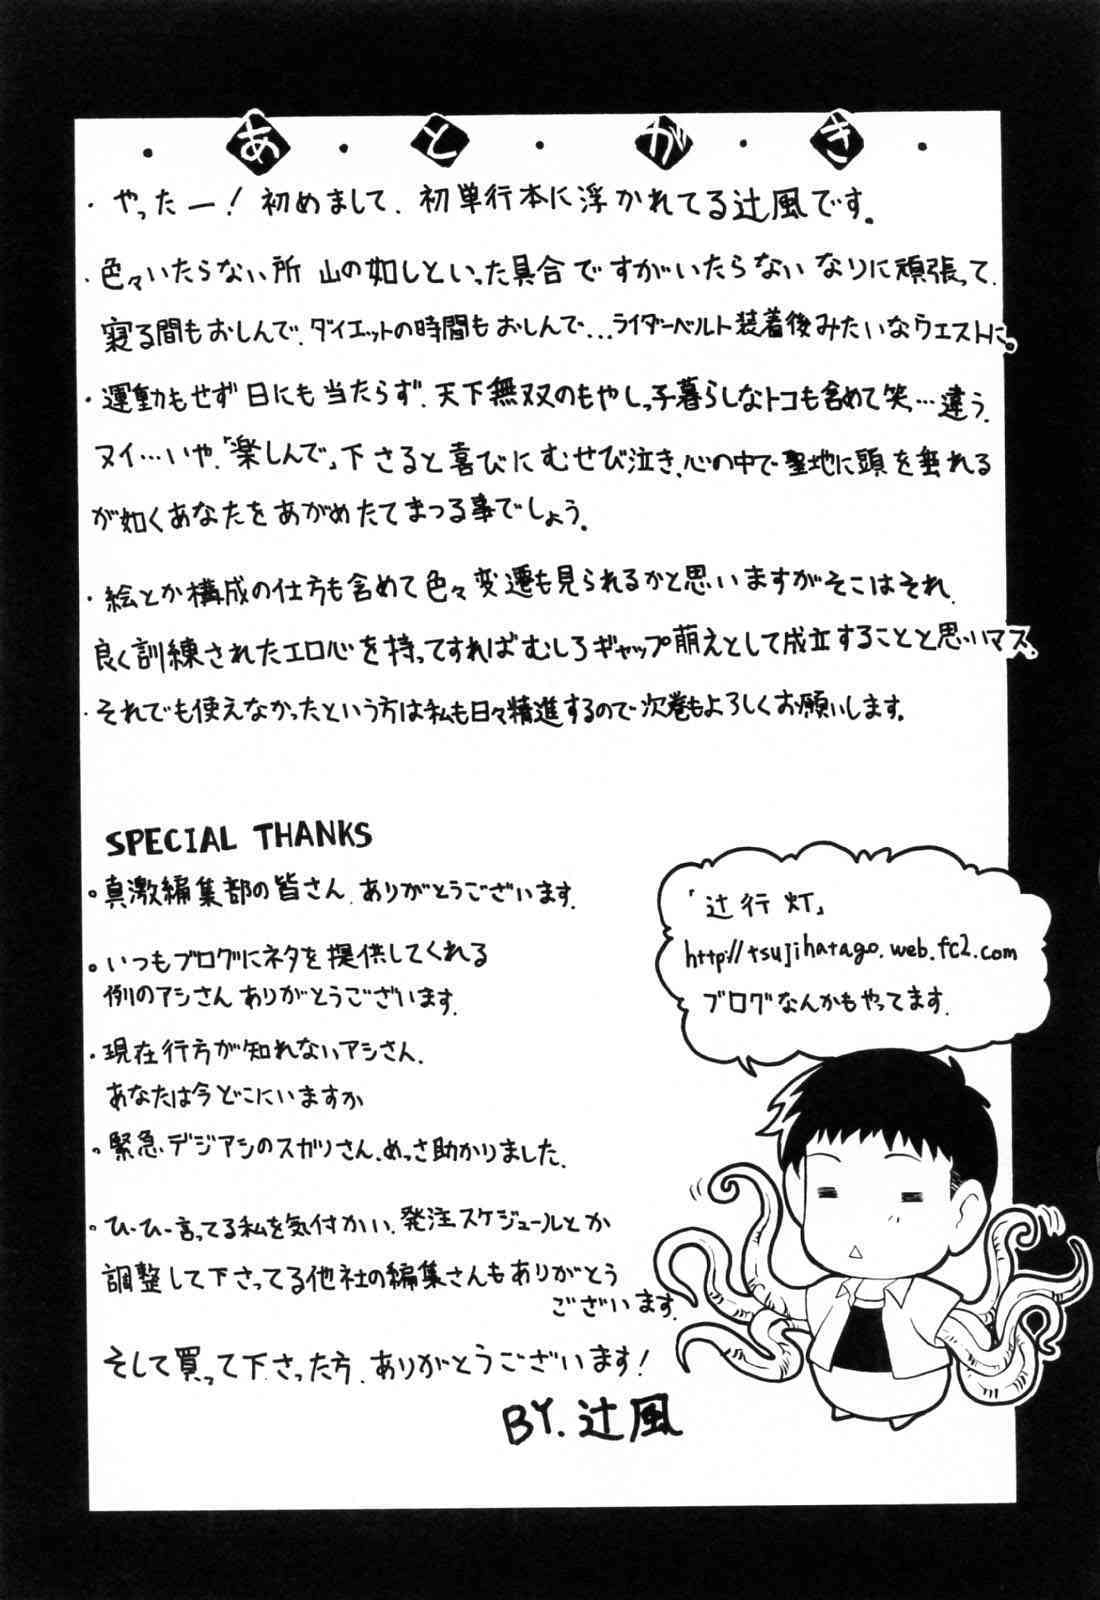 あ・と・が・き
・やったー！初めまして、初単行本に浮かれてる辻風です。
・色々いたらない所 山の如しといった具合ですがいたらないなりに頑張って、
寝る間もおしんで、ダイエットの時間もおしんで…ライダーベルト装着後みたいなウエストに。
・運動もせず日にも当たらず、天下無双のもやしっ子暮らしなトコも含めて笑…違う、
ヌイ…いや、「楽しんで」下さると喜びにむせび泣き、心の中で聖地に頭を垂れる
が如くあなたをあがめたてまつる事でしょう。
・絵とか構成の仕方も含めて色々変遷も見られるかと思いますがそこはそれ、
良く訓練されたエロ心を持ってすればむしろギャップ萌えとして成立することと思いマス。
・それでも使えなかったという方は私も日々精進するので次巻もよろしくお願いします。
SPECIAL THANKS
。真激編集部の皆さん、ありがとうございます。
。いつもブログにネタを提供してくれる
例のアシさん ありがとうございます。
・現在行方が知れないアシさん、
あなたは今どこにいますか
。緊急デジアシのスガリさん、めっさ助かりました。
。ひーひー言ってる私を気付かい、発注スケジュールとか
調整して下さってる他社の編集さんもありがとう
ございます。
そして買って下さった方、ありがとうございます！
BY.辻風
「辻行灯」
http://tsujihatago.web.fc2.com
ブログなんかもやってます。